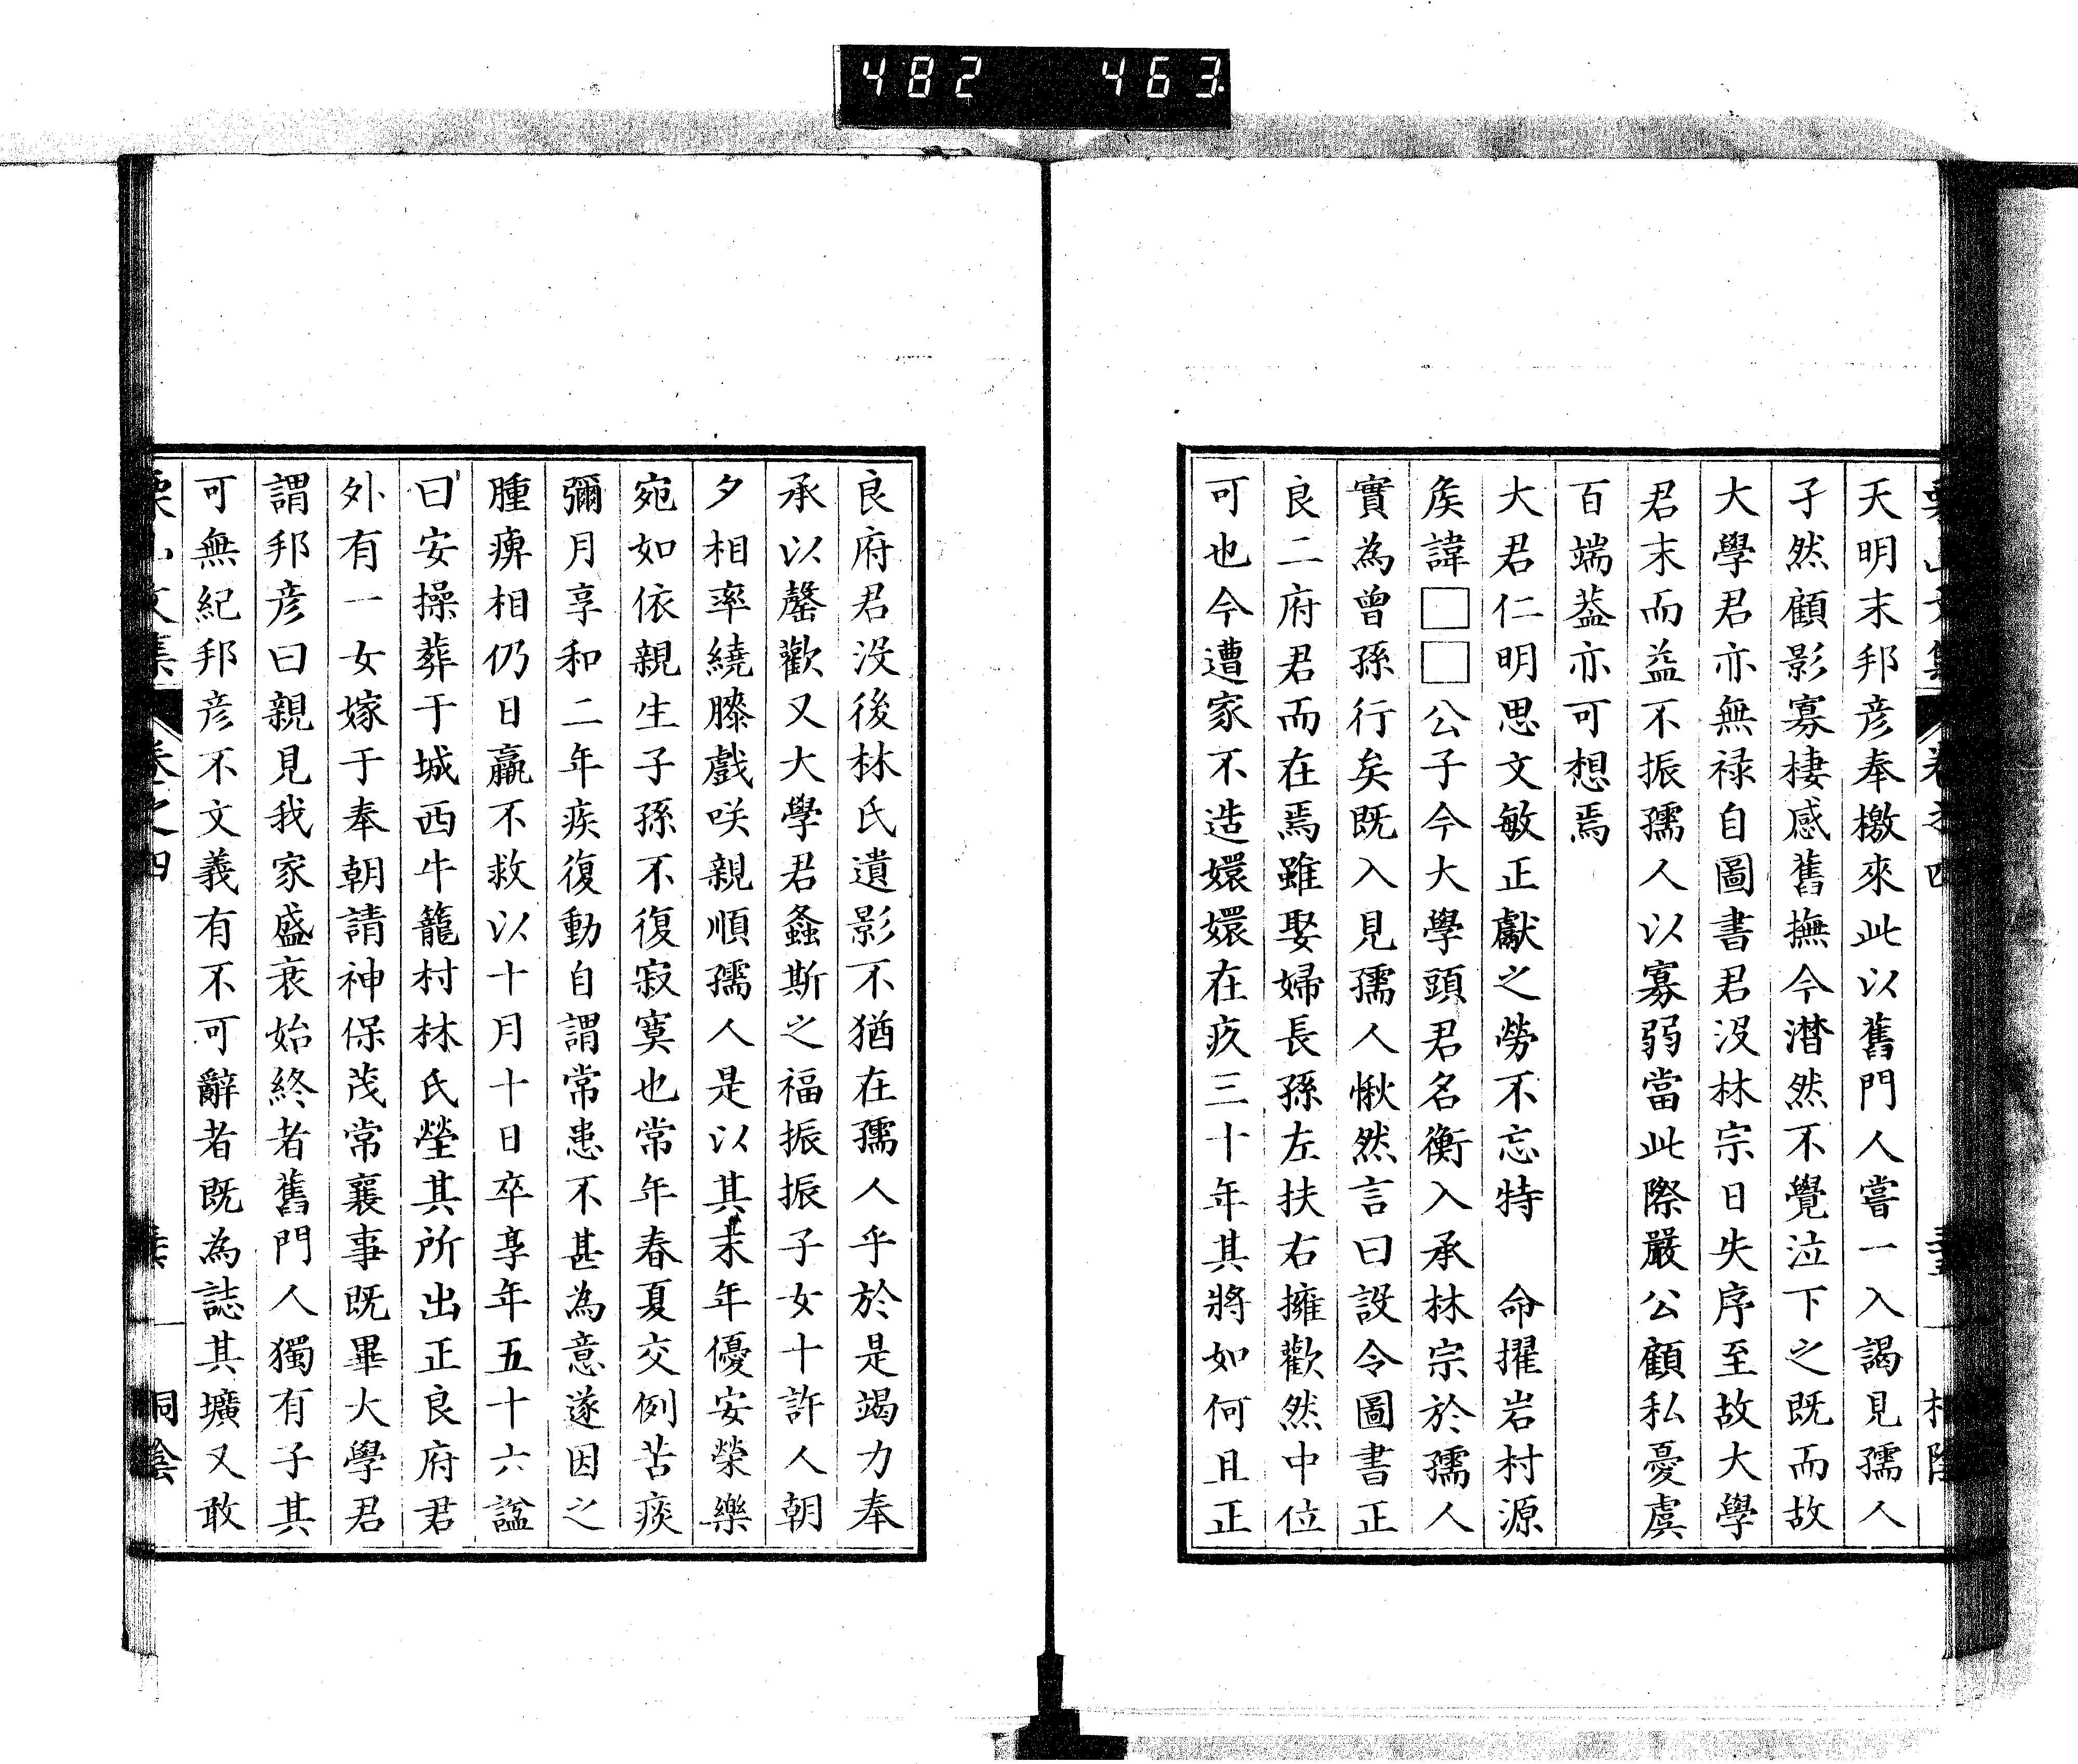 482 463
天明末邦彦奉檄來此以舊門人嘗一入謁見孺人
孑然顧影寡棲感舊撫今潸然不覺泣下之既而故
大學君亦無禄自圖書君没林宗日失序至故大學
君末而益不振孺人以寡弱當此際嚴公顧私憂虞
百端葢亦可想焉
大君仁明思文敏正獻之勞不忘特 命擢岩村源
矦諱□□公子今大學頭君名衡入承林宗於孺人
實為曾孫行矣既入見孺人愀然言曰設令圖書正
良二府君而在焉雖娶婦長孫左扶右擁歡然中位
可也今遭家不造嬛嬛在疚三十年其將如何且正
良府君没後林氏遺影不猶在孺人乎於是竭力奉
承以罄歡又大學君螽斯之福振振子女十許人朝
夕相率繞膝戲咲親順孺人是以其末年優安榮樂
宛如依親生子孫不復寂寞也常年春夏交例苦痰
彌月享和二年疾復動自謂常患不甚為意遂因之
腫痺相仍日羸不救以十月十日卒享年五十六諡
曰安操葬于城西牛籠村林氏塋其所出正良府君
外有一女嫁于奉朝請神保茂常襄事既畢大學君
謂邦彦曰親見我家盛衰始終者舊門人獨有子其
可無紀邦彦不文義有不可辭者既為誌其壙又敢
栗山文集 卷之四